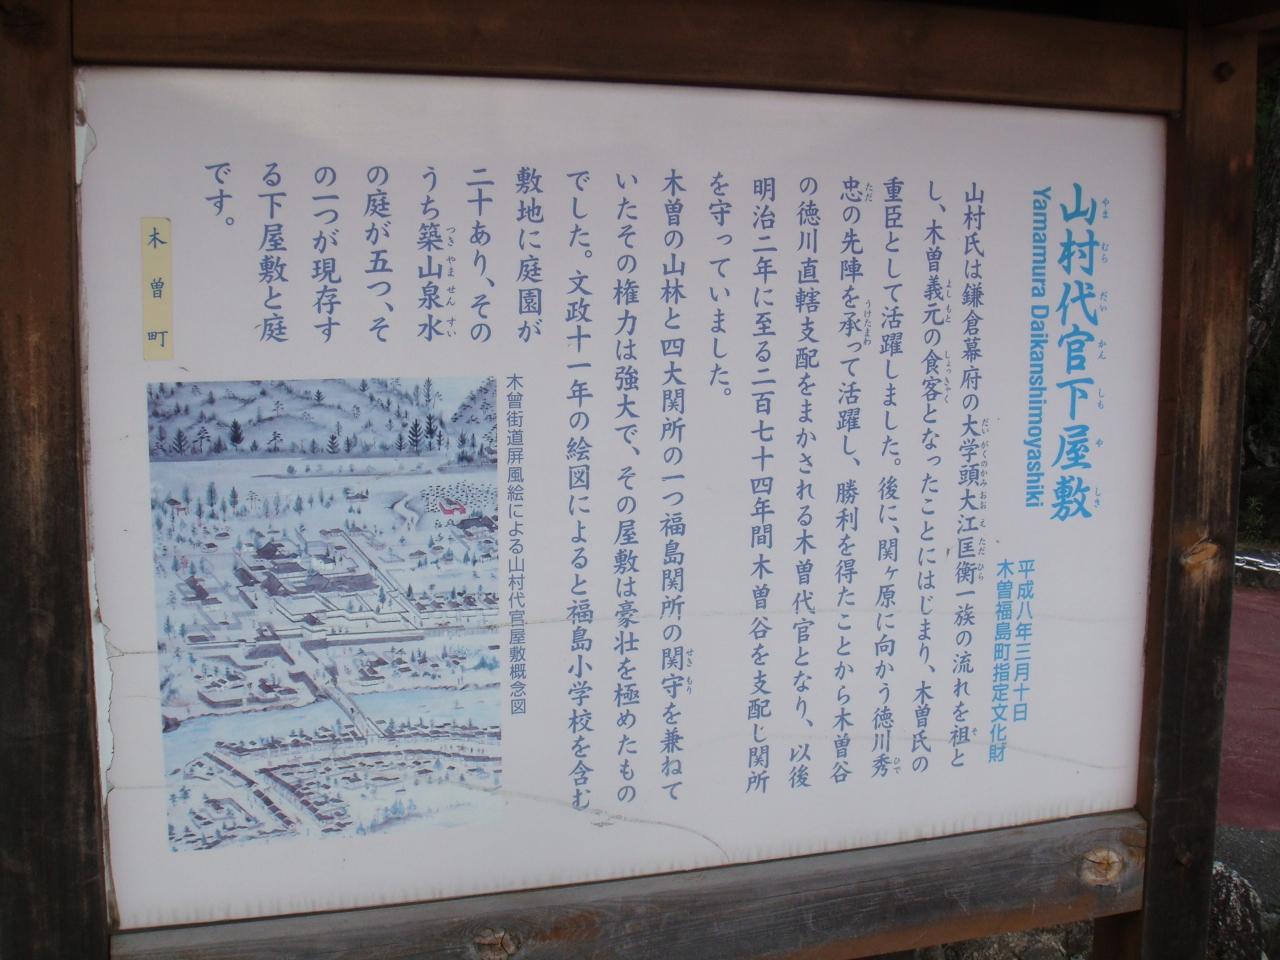 山村代官下屋敷
Yamamura Daikanshimoyashiki
平成八年三月十日
木曽福島町指定文化財
山村氏は鎌倉幕府の大学頭大江匡衡一族の流れを祖と
し、木曽義元の食客となったことにはじまり、木曽氏の
重臣として活躍しました。後に、関ヶ原に向かう徳川秀
忠の先陣を承って活躍し、勝利を得たことから木曽谷
の徳川直轄支配をまかされる木曽代官となり、以後
明治二年に至る二百七十四年間木曽谷を支配し関所
を守っていました。
木曽の山林と四大関所の一つ福島関所の関守を兼ねて
いたその権力は強大で、その屋敷は豪壮を極めたもの
でした。文政十一年の絵図によると福島小学校を含む
敷地に庭園が
二十あり、その
うち築山泉水
の庭が五つ、そ
の一つが現存す
る下屋敷と庭
です。
木曾街道屏風絵による山村代官屋敷概念図
木曽町